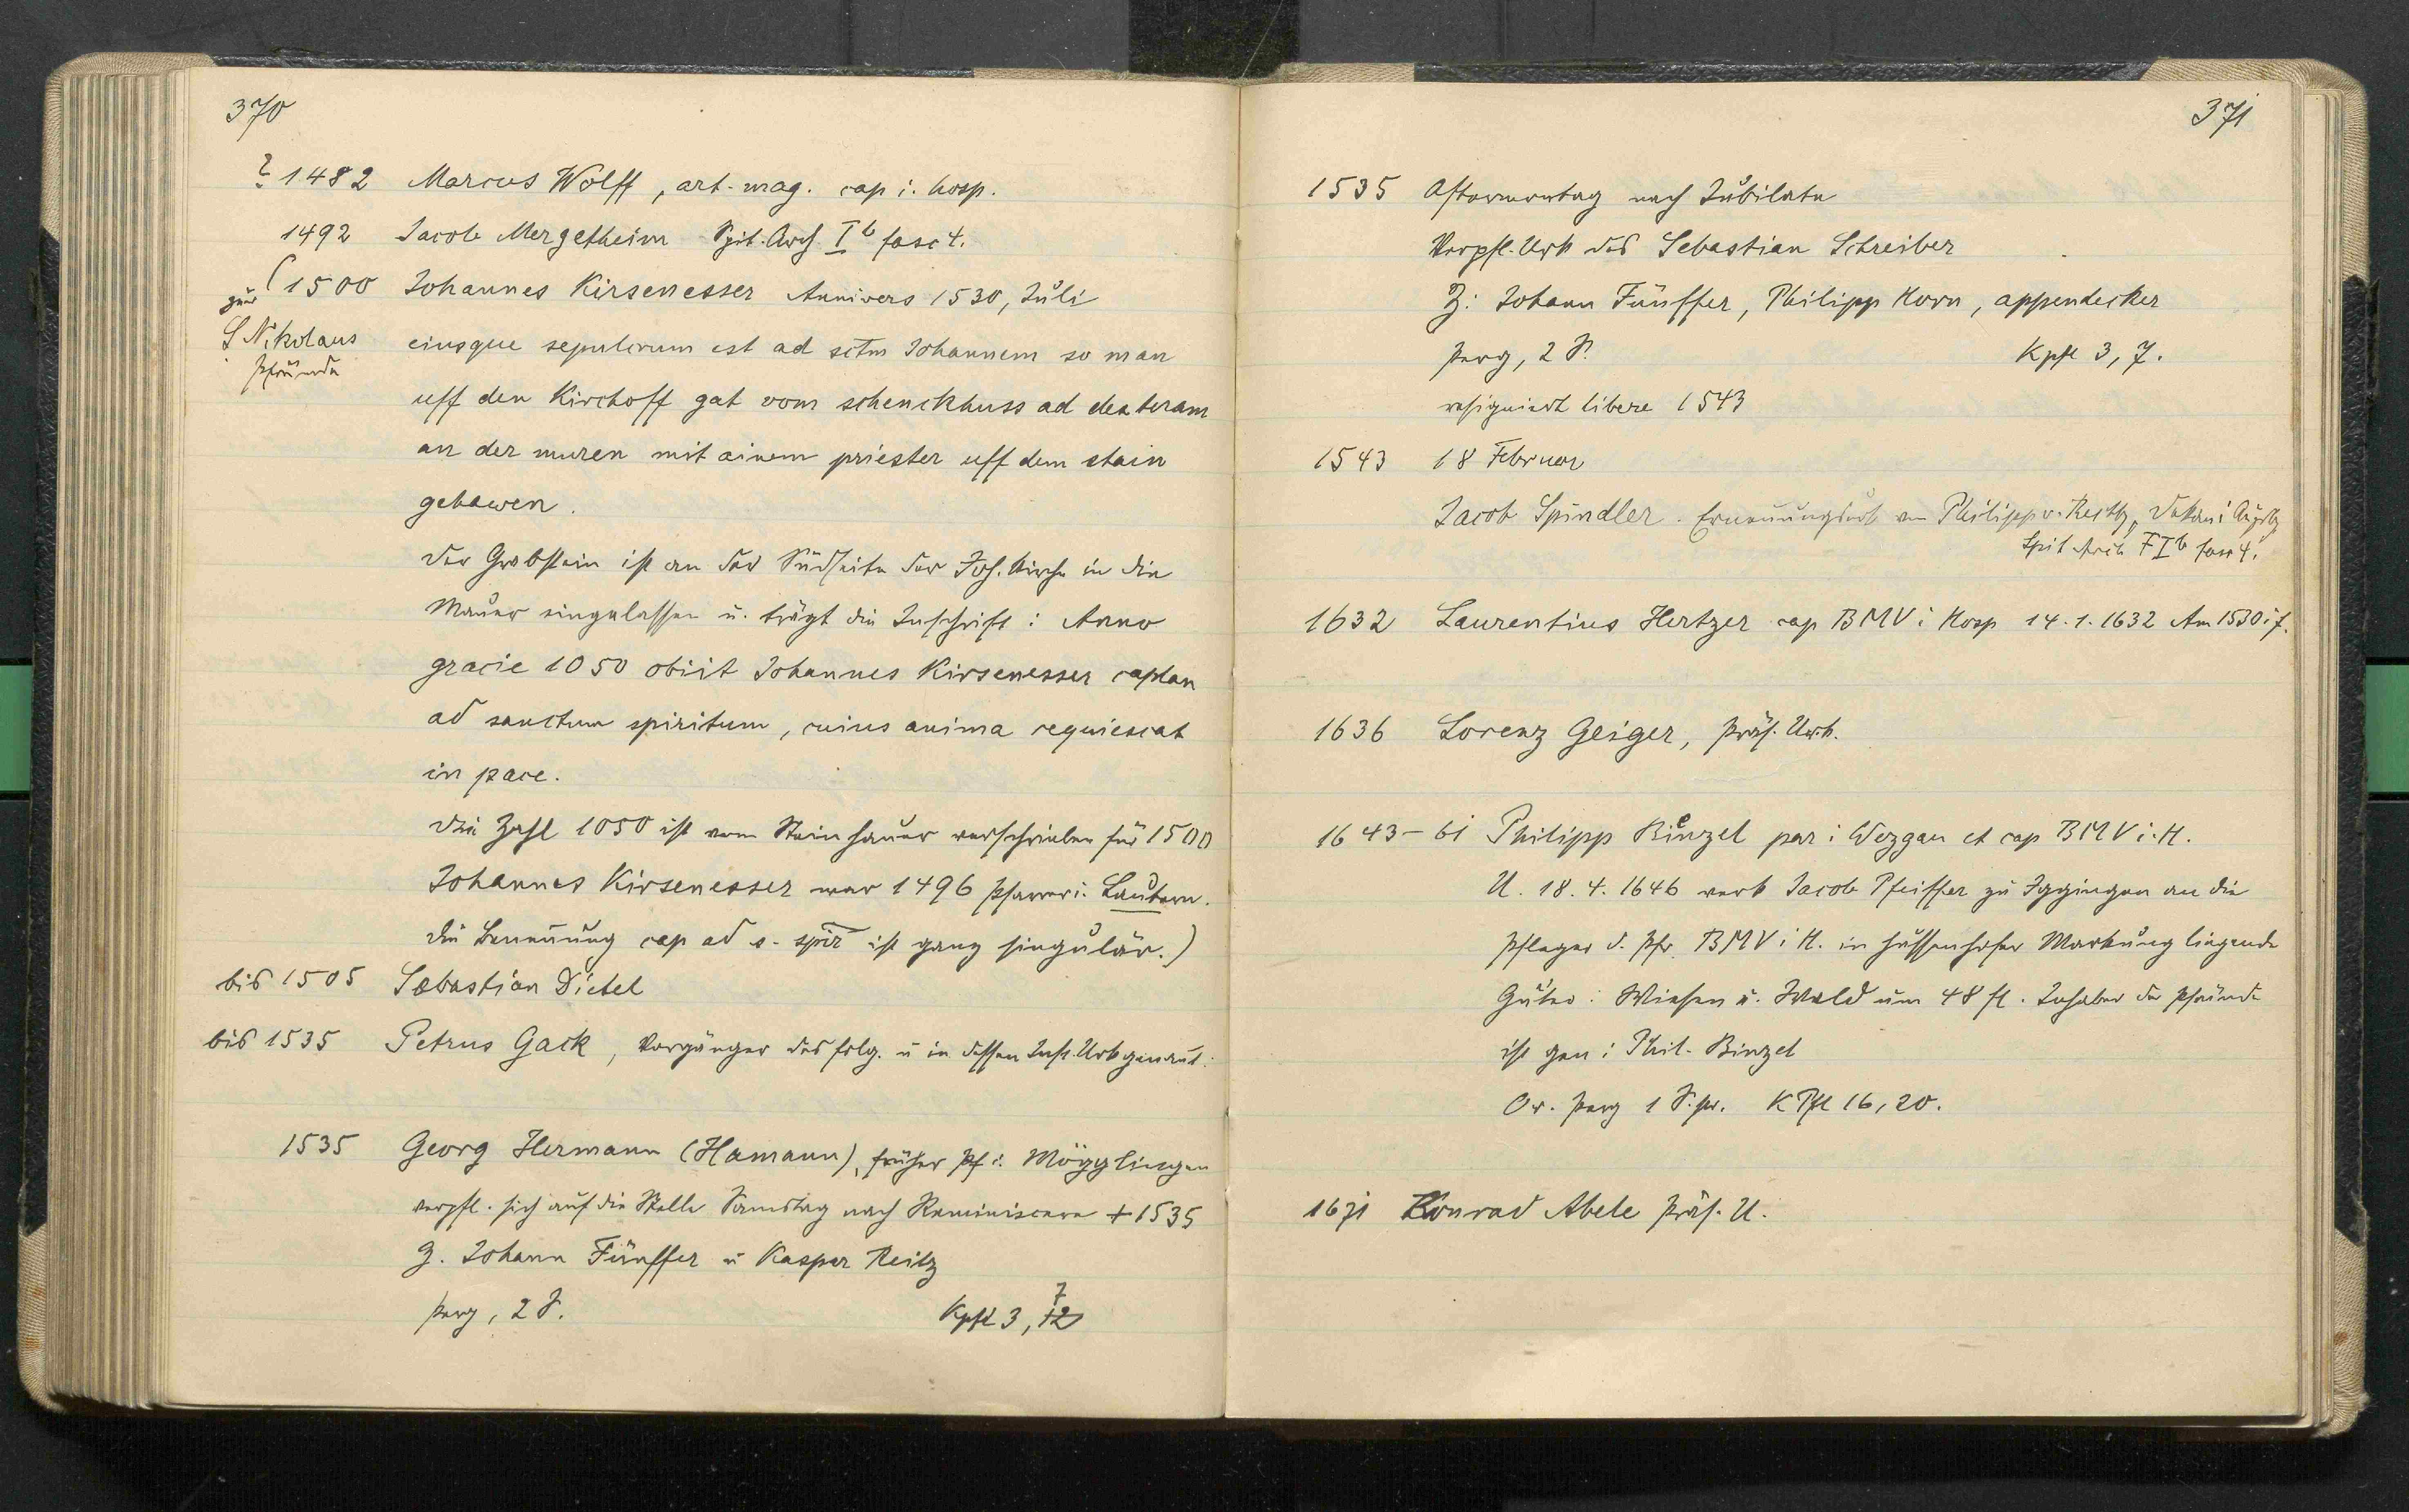 370
? 1482 Marcus Wolff, art. mag. cap i. hosp.
1492 Jacob Mergetheim Spit. Arch. I b fasc 4.
(1500 Johannes Kirsenesser Annivers 1530, Juli
zur
S Nikolaus
Pfründe
eiusque sepulcrum est ad sctm Johannem so man
uff den Kirchoff gat vom schenckhuss ad dexteram
an der muren mit ainem priester uff dem stain
gehawen.
Der Grabstein ist an der Südseite der Joh. Kirche in die
Mauer eingelassen u. trägt die Inschrift: Anno
gracie 1050 obiit Johannes Kirsenesser caplan
ad sanctum spiritum, cuius anima requiescat
in pace.
Die Zahl 1050 ist vom Steinhauer verschrieben für 1500
Johannes Kirsenesser war 1496 Pfarrer i. Lautern.
die Benennung cap ad s. spir ist ganz singulär.)
bis 1505 Sebastian Dietel
bis 1535 Petrus Gack, Vorgänger des folg. u in dessen Urk genannt.
1535 Georg Hermann (Hamann), früher Pf i. Mögglingen
verpfl. sich auf die Stelle Samstag nach Reminiscere + 1535
Z. Johann Fünffer u Kaspar Reitz
Perg, 2 S. Kpfl 3, 12 7
371
1535 Aftermontag nach Jubilate
Verpfl. Urk des Sebastian Schreiber
Z: Johann Fünffer, Philipp Horn, appendecker
Perg, 2 S. Kpfl 3, 7.
resigniert libere 1543
1543 18 Februar
Jacob Spindler. Ernennungsurk von Philipp v. Dekan i Augsbg
Spit Arch F I b fasc 4.
1632 Laurentius Hertzer cap BMV i Hosp 14.1.1632 Am 1530 i f.
1636 Lorenz Geiger, Präs. Urk.
1643-61 Philipp Binzel par i Wezgau et cap BMV i. H.
U. 18.4.1646 verk Jacob Pfeiffer zu Iggingen an die
Pfleger d. Pfr. BMV i H. in hussenhofer Markung liegende
Güter: Wiesen u. Wald um 48 fl. Inhaber der Pfründe
ist gen: Phil. Binzel
Or. Perg 1 S. pr. K Pfl 16, 20.
1671 Konrad Abele Präs. U.